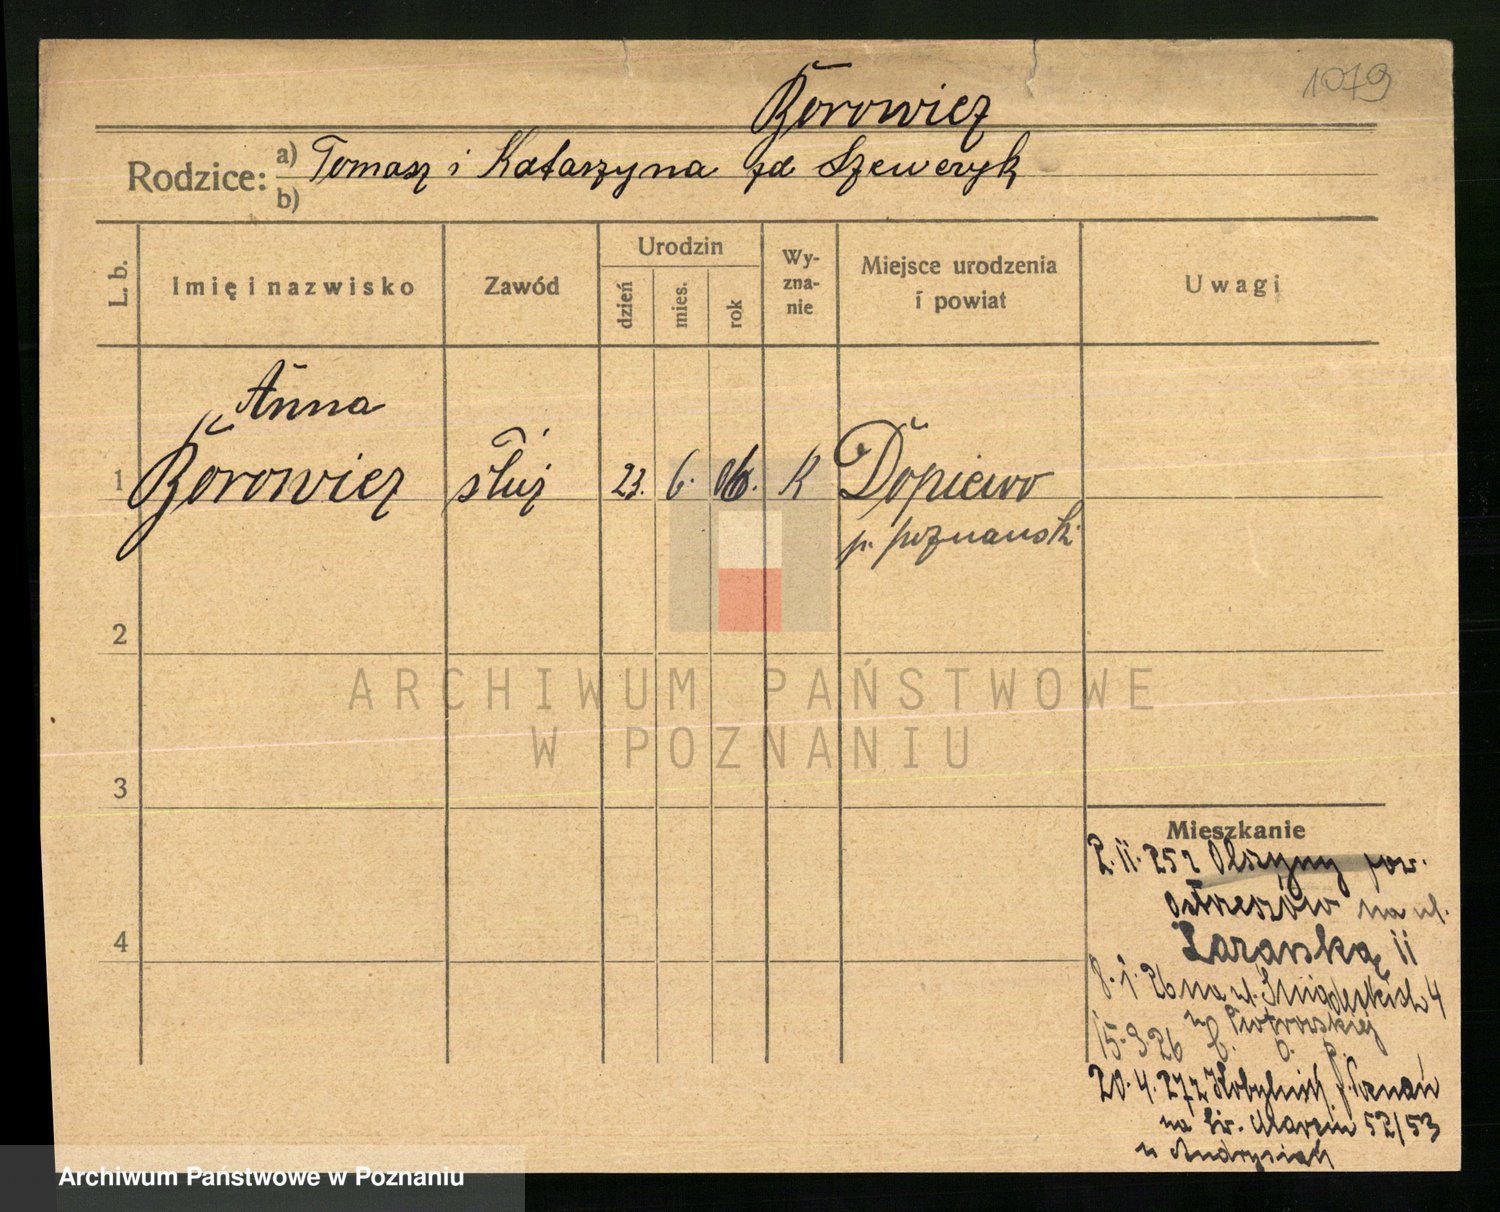 1079
Borowicz
Rodzice: a) Tomasz i Katarzyna zd Szewczyk
b)
L. b.
Imię i nazwisko
Zawód
Urodzin
dzień
mies.
rok
Wy-
zna-
nie
Miejsce urodzenia
i powiat
Uwagi
Anna
1 Borowicz służ 23. 6. 06. K Dopiewo
p. poznański
2
3
4
Mieszkanie
2.11.25 z Olszyny pow.
Ostrzeszów na ul.
11
8.1.26 na ul. Śniadeckich 4
u Piotrowskiej
15.3.26
20.4.27 z p. Poznań
na Św. Marcin 52/53
u
ARCHIWUM PAŃSTWOWE
W POZNANIU
Archiwum Państwowe w Poznaniu